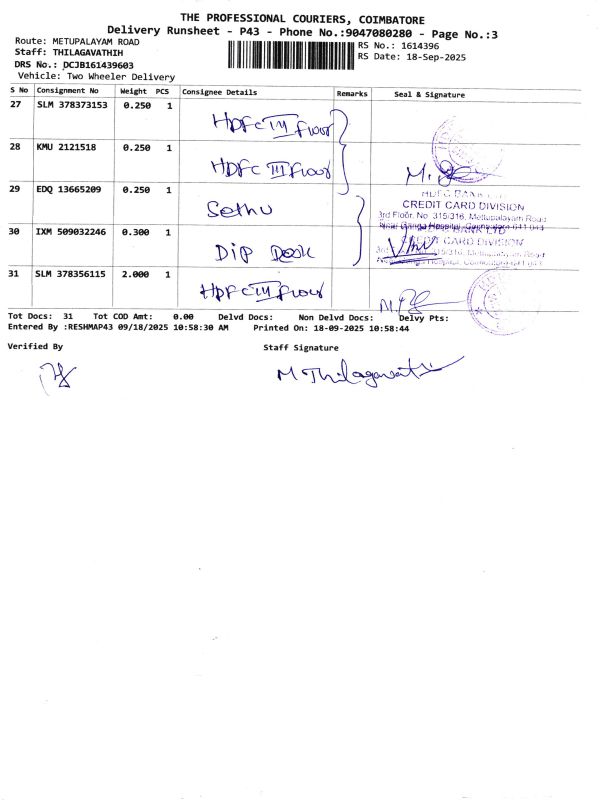 THE PROFESSIONAL COURIERS, COIMBATORE
Delivery Runsheet - P43 - Phone No.:9047080280 - Page No.:3
Route: METUPALAYAM ROAD
RS No.: 1614396
Staff: THILAGAVATHIH
RS Date: 18-Sep-2025
DRS No.: DCJB161439603
Vehicle: Two Wheeler Delivery
S No Consignment No Weight PCS Consignee Details Remarks Seal & Signature
27 SLM 378373153 0.250 1 HDFC III Floor
28 KMU 2121518 0.250 1 HDFC III Floor
29 EDQ 13665209 0.250 1 Sethu
HDFC BANK LTD
CREDIT CARD DIVISION
3rd Floor, No. 315/316, Mettupalayam Road
30 IXM 509032246 0.300 1 Dip Desk
BANK LTD
CREDIT CARD DIVISION
315/316, Mettupalayam Road
31 SLM 378356115 2.000 1 HDFC III Floor
Tot Docs: 31 Tot COD Amt: 0.00 Delvd Docs: Non Delvd Docs: Delvy Pts:
Entered By :RESHMAP43 09/18/2025 10:58:30 AM Printed On: 18-09-2025 10:58:44
Verified By Staff Signature
M Thilagavathi